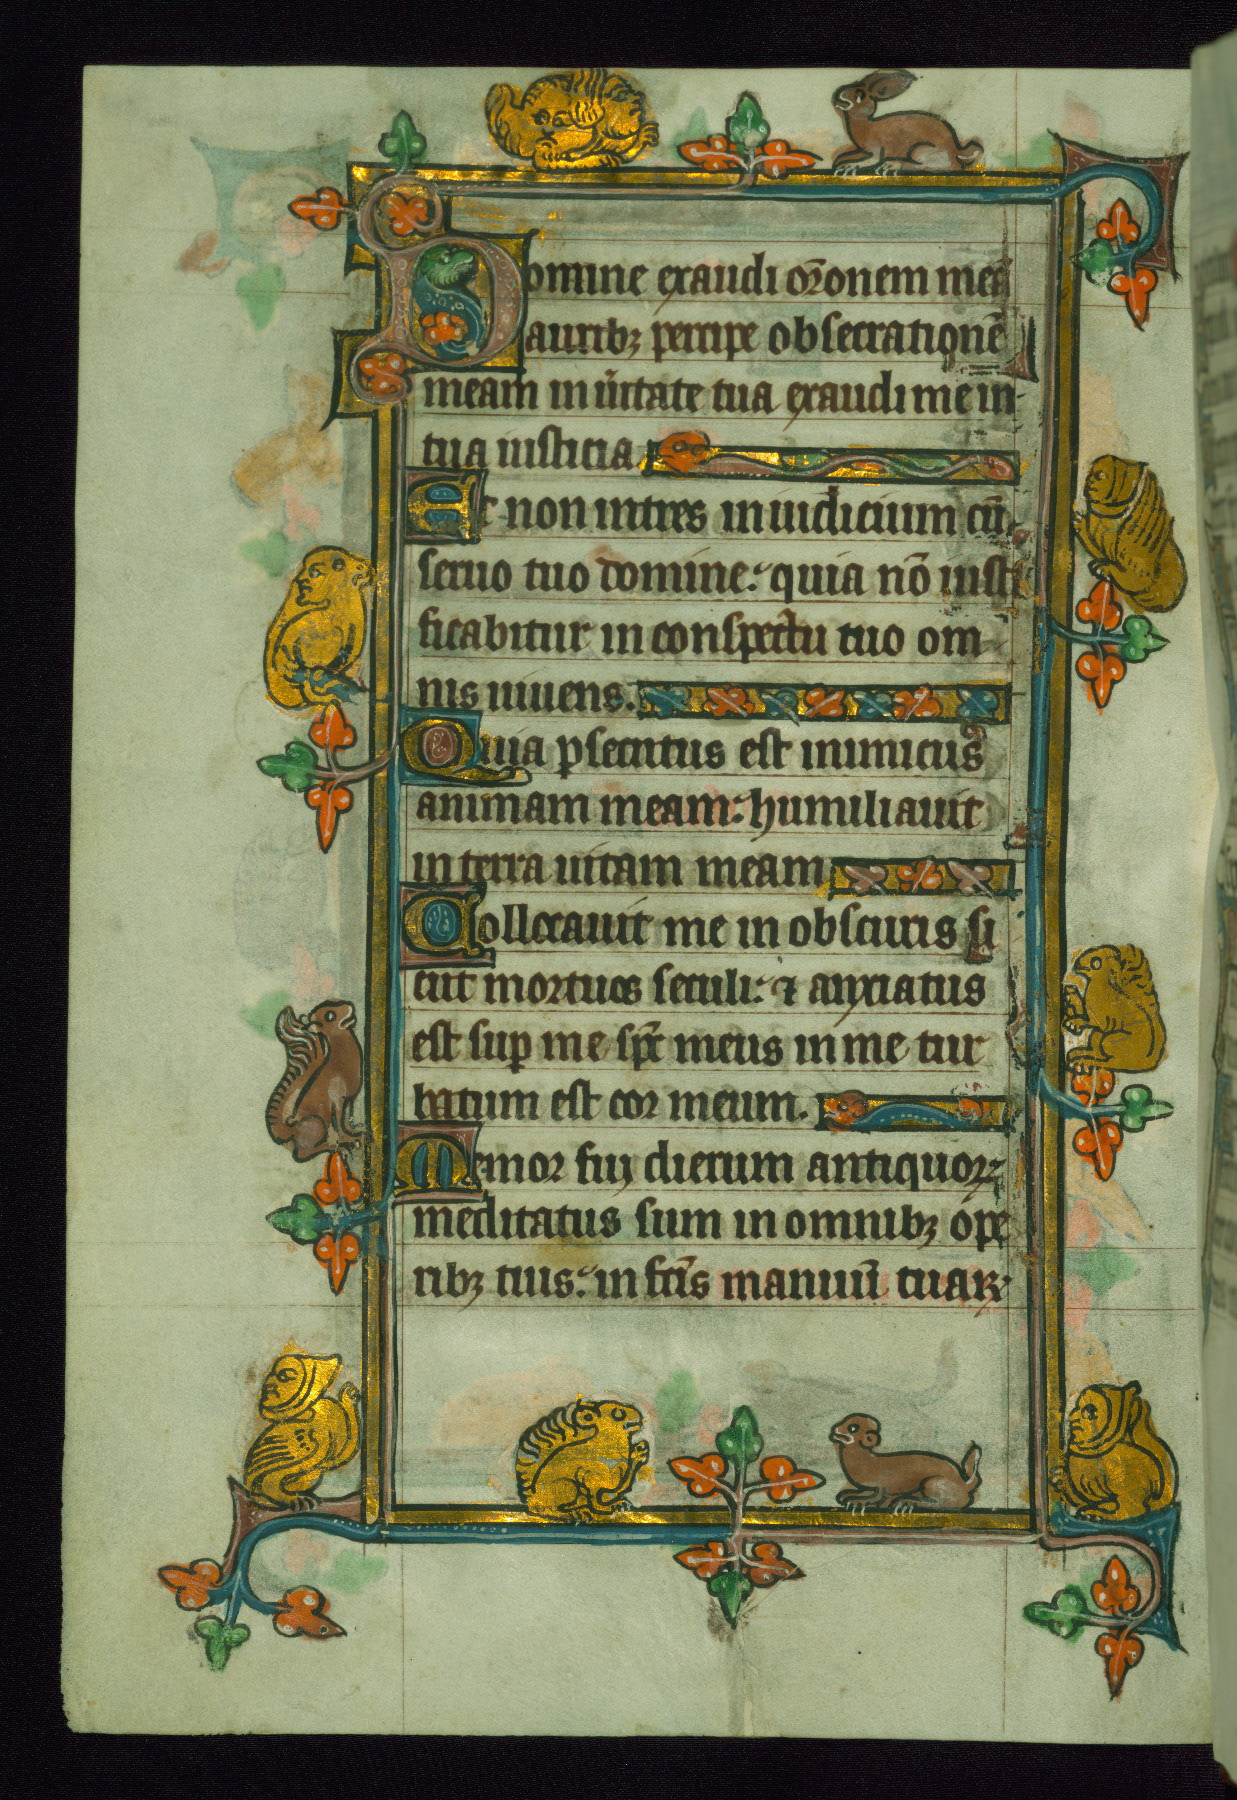 Domine exaudi or̄onem meā
auribꝫ percipe obsecrationē
meam in ūitate tua exaudi me in
tua iusticia
Et non intres in iudicium cū
seruo tuo domine: quia nō iusti
ficabitur in conspectu tuo om
nis uiuens.
Quia ꝑsecutus est inimicus
animam meam: humiliauit
in terra uitam meam
Collocauit me in obscuris si
cut mortuos seculi: ⁊ anxiatus
est suꝑ me sp̄c meus in me tur
batum est cor meum.
Memor fui dierum antiquoꝝ
meditatus sum in omnibꝫ ope
ribꝫ tuis: in fc̄is manuū tuaꝝ